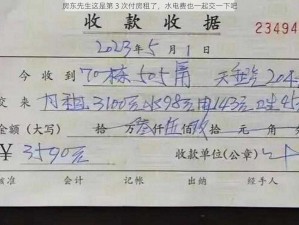 房东先生这是第3次付房租了，水电费也一起交一下吧
收款收据
23494
2023年5月1
今收到 70栋 505角
交来 3100元 水98元 电143元 卫生45
金额（大写） 拾 万 叁仟伍佰 拾 元 角
¥ 3590元 收款单位(公章)
准 会计 记帐 出纳 经手人